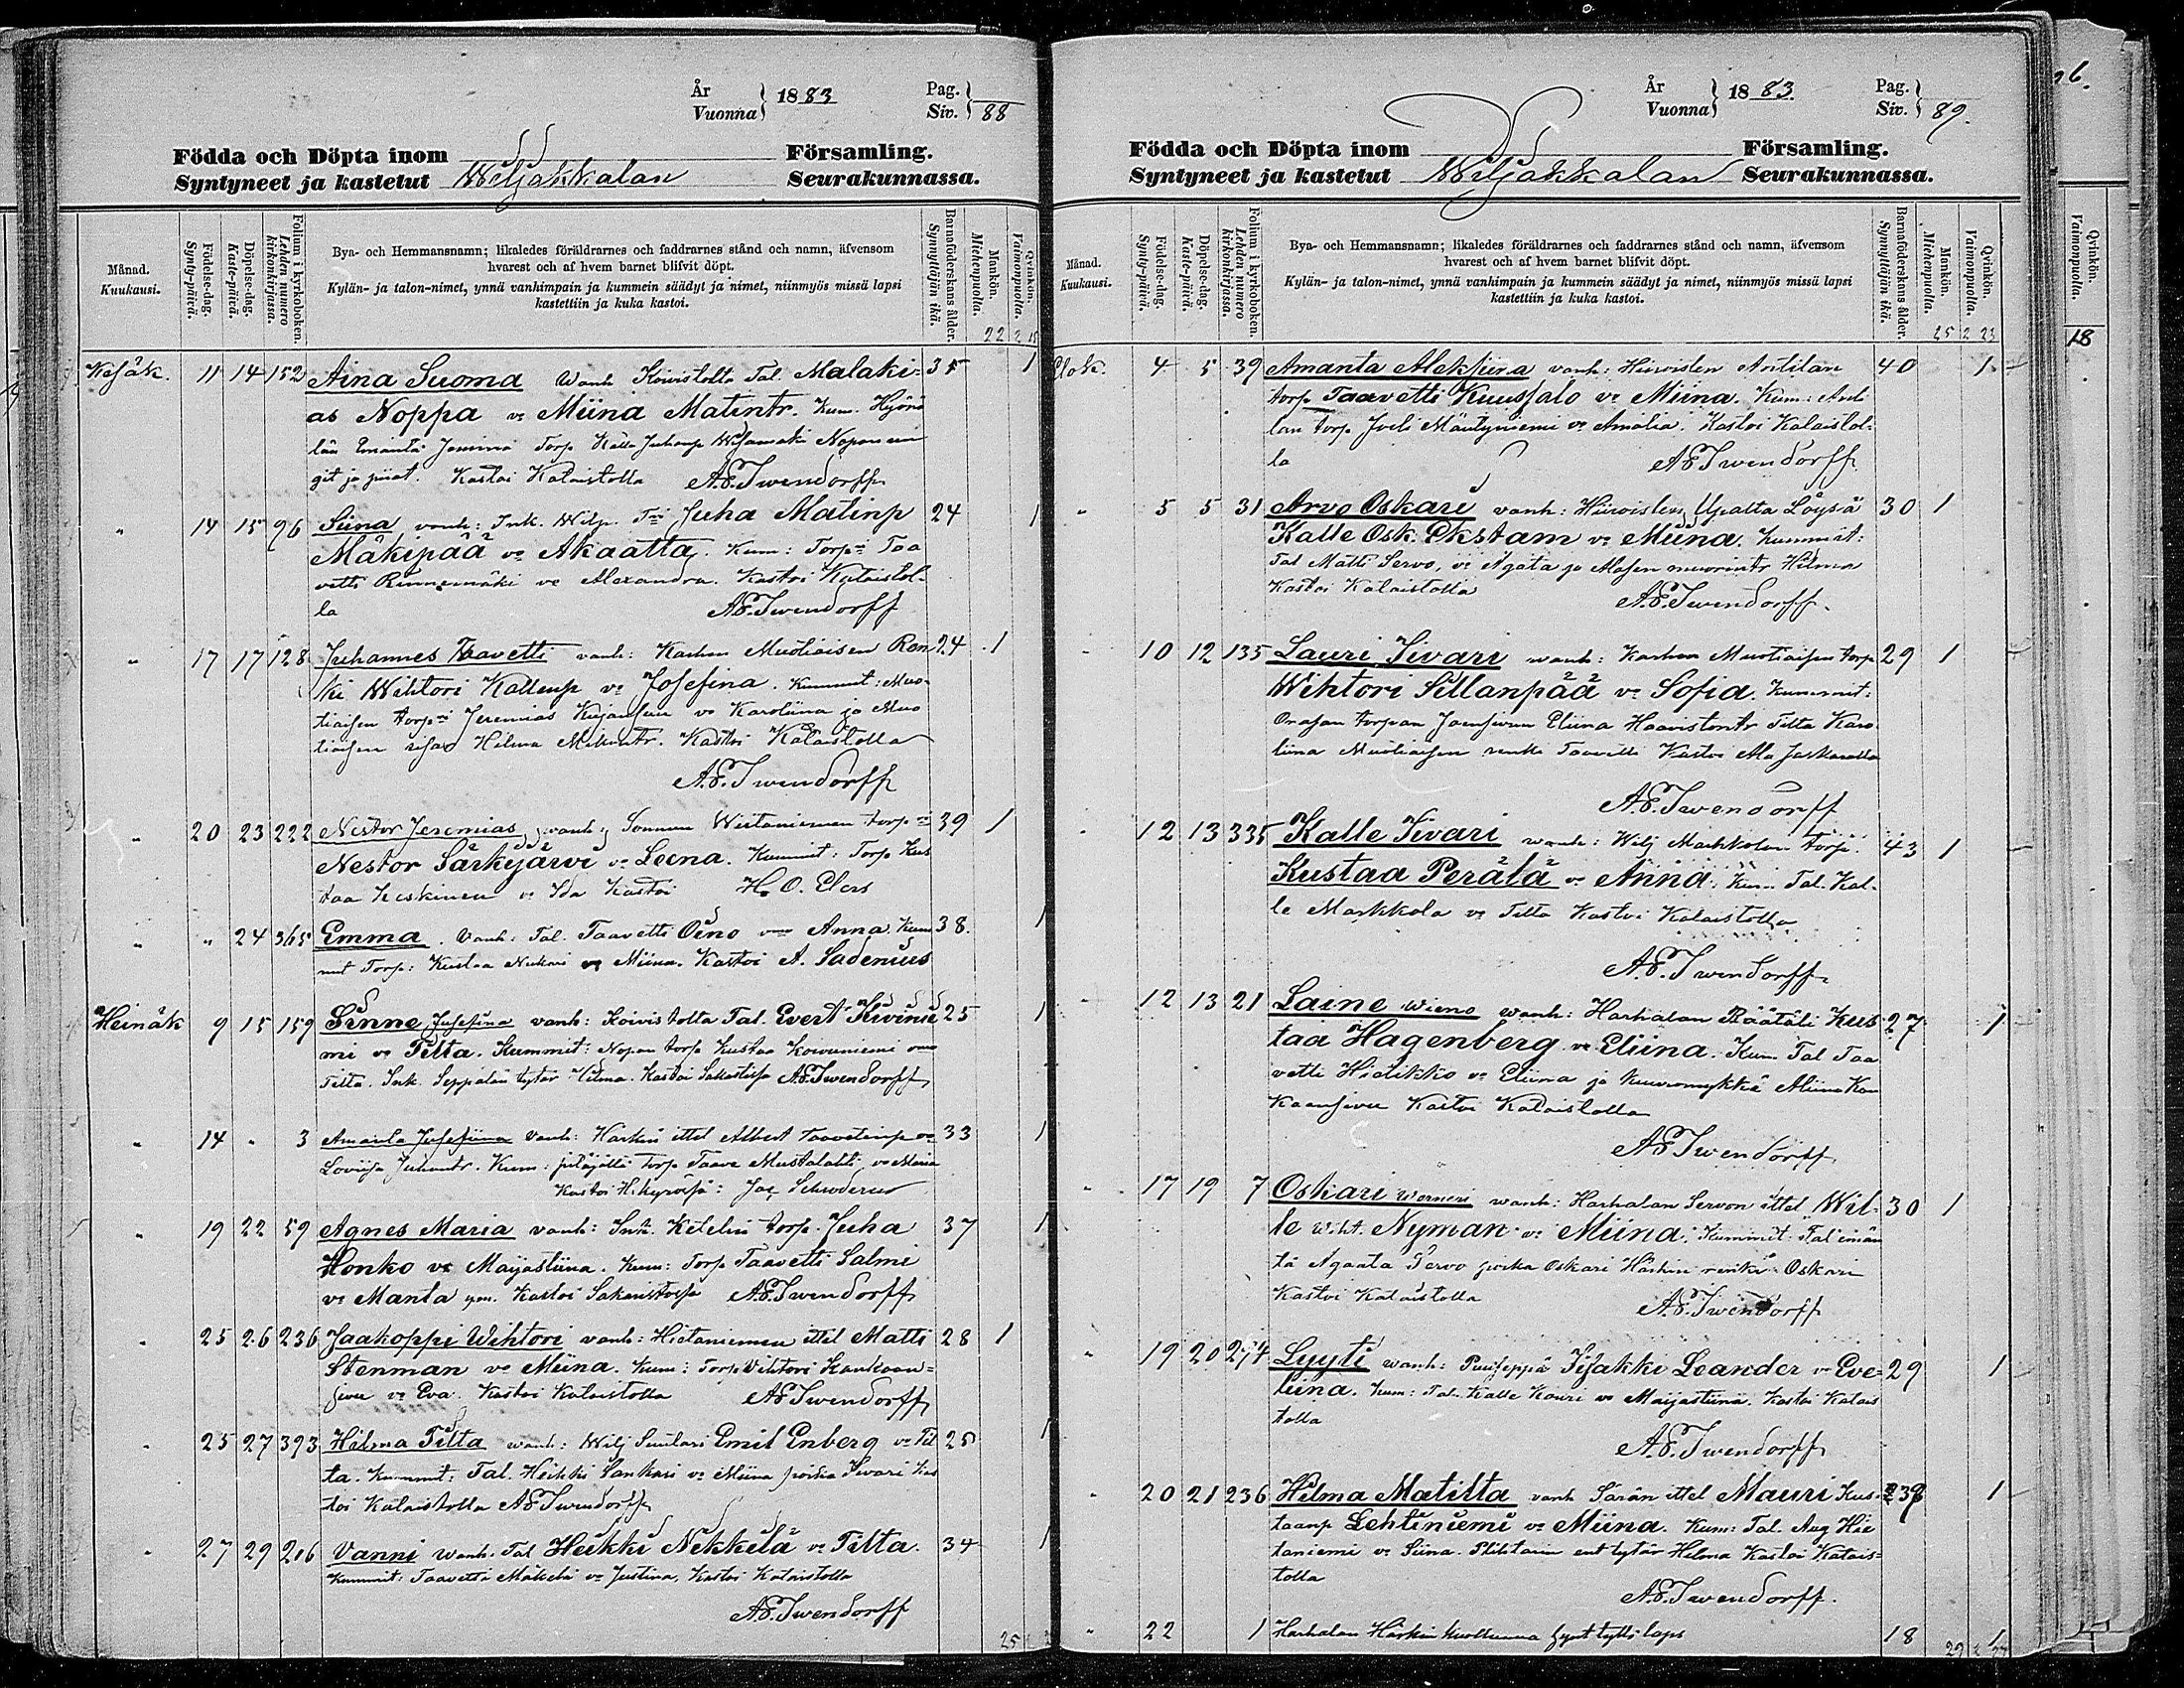 År
Vuonna 1883
Pag.
Siv. 88
Födda och Döpta inom Församling.
Syntyneet ja kastetut Wiljakkalan Seurakunnassa.
Månad.
Kuukausi.
Födelse-dag.
Synty-päivä.
Döpelse-dag.
Kaste-päivä.
Folium i kyrkoboken.
Lehden numero kirkonkirjassa.
Bya- och Hemmansnamn; likaledes föräldrarnes och faddrarnes stånd och namn, äfvensom
hvarest och af hvem barnet blifvit döpt.
Kylän- ja talon-nimet, ynnä vanhimpain ja kummein säädyt ja nimet, niinmyös missä lapsi
kastettiin ja kuka kastoi.
Barnaföderskans ålder.
Synnyttäjän ikä.
Mankön.
Miehenpuolta.
Qvinkön.
Vaimonpuolta.
22 2 18
Kesäk. 11 14 152 Aina Suoma Wanh Koivistolta Tal. Malaki= 35 1
as Noppa vo Miina Matintr. Kum. Hyöni
län Emäntä Torp Kalle Juhanp Noponen
git ja piiat. Kastoi Kalaistolla A.E. Iwendorff
" 14 15 96 Siina vanh: Ink. Wilp. Tri Juha Matinp 24 1
Mäkipää vo Akaatta. Kum: Torpri Taa
vetti Rinnemäki vo Alexandra. Kastoi Kalaistol-
la A.E. Iwendorff
" 17 17 128 Juhannes Taavetti vanh: Karhen Muotiaisen Ren 24 1
ki Wihtori Kallenp vo Josefina. Kummit: Muo-
tiaisen torpri Jeremias vo Karoliina ja Muo
tiaisen Hilma Kastoi Kalaistolla
A.E. Iwendorff
" 20 23 222 Nestor Jeremias, vanh: Sonnun Wirtaniemen torpri 39 1
Nestor Särkijärvi vo Leena. Kummit: Torp Kus
taa Keskinen vo Ida Kastoi H. O. Elers
" " 24 365 Emma. Vanh: Tal. Taavetti Oino vmo Anna Kum 38. 1
mit Torp: Kustaa vo Miina. Kastoi A. Sadenius
Heinäk 9 15 159 Sinne Josefina vanh: Koivistolta Tal. Evert Kivinie 25 1
mi vo Tilta. Kummit: Nopon torp Kustaa Koivuniemi vmo
Tilta. Ink. Seppälän tytär Hilma. Kastoi A.E. Iwendorff
" 14 " 3 Amanta Josefiina Vanh: Härkin ittel Albert Taavetinp vo 33 1
Loviisa Juhontr. Kum: Torp Taave Mustalahti vo Miina
Kastoi H.kyrössä: Jac Schroderus
" 19 22 59 Agnes Maria vanh: Ink. Ketelin torp. Juha 37 1
Honko vo Maijastiina. Kum: Torp Taavetti Salmi
vo Manta Kastoi A.E. Iwendorff
" 25 26 236 Jaakoppi Wihtori vanh: Hietaniemen ittel Matti 28 1
Stenman vo Miina. Kum: Torp Wihtori Kankaan=
sivu vo Eva. Kastoi Kalaistolla A.E. Iwendorff
" 25 27 393 Hilma Tilta wanh: Wilj Suutari Emil Enberg vo Til 25 1
ta. Kummit: Tal. Heikki Sankari vo Miina poika Iivari Kas
toi Kalaistolla A.E. Iwendorff
" 27 29 206 Vanni Wanh. Tal Heikki Nikkilä vo Tilta. 34 1
Kummit: Taavetti Mäkelä vo Justina, Kastoi Kalaistolla
A.E. Iwendorff
25
År
Vuonna 1883
Pag.
Siv. 89.
Födda och Döpta inom Församling.
Syntyneet ja kastetut Wiljakkalan Seurakunnassa.
Månad.
Kuukausi.
Födelse-dag.
Synty-päivä.
Döpelse-dag.
Kaste-päivä.
Folium i kyrkoboken.
Lehden numero kirkonkirjassa.
Bya- och Hemmansnamn; likaledes föräldrarnes och faddrarnes stånd och namn, äfvensom
hvarest och af hvem barnet blifvit döpt.
Kylän- ja talon-nimet, ynnä vanhimpain ja kummein säädyt ja nimet, niinmyös missä lapsi
kastettiin ja kuka kastoi.
Barnaföderskans ålder.
Synnyttäjän ikä.
Mankön.
Miehenpuolta.
Qvinkön.
Vaimonpuolta.
25 2 23
Elok. 4 5 39 Amanta Aleksiira vanh: Hiiroisten Antilan 40 1
torp Taavetti Kuussalo vo Miina. Kum: Anti
lan torp. Joeli Mäntyniemi vo Amalia. Kastoi Kalaistol-
la A E Iwendorff
" 5 5 31 Arvo Oskari vanh: Hiiroisten Upalta Löysä 30 1
Kalle Osk. Ekstam vo Miina. Kummit:
Tal Matti Servo, vo Agata ja Hilma
Kastoi Kalaistolla A.E. Iwendorff.
" 10 12 135 Lauri Iivari wanh: Karhen Muotiaisen torp 29 1
Wihtori Sillanpää vo Sofia. Kummit:
Orasen torpan Eliina Tilta Karo
liina Muotiaisen renki Taavetti Kastoi Ala Jaskaralla
A.E. Iwendorff
" 12 13 335 Kalle Iivari wanh: Wilj Markkolan torp. 43 1
Kustaa Perälä vo Anna. Kum. Tal. Kal-
le Markkola vo Tilta Kastoi Kalaistolla
A.E. Iwendorff
" 12 13 21 Laine Wieno wanh: Harhalan Räätäli Kus 27 1
taa Hagenberg vo Eliina. Kum Tal Taa
vetti Hietikko vo Eliina ja kuuromykkä Miina Kan
kaansivu Kastoi Kalaistolla
A E Iwendorff
" 17 19 7 Oskari Werneri wanh: Harhalan Servon ittel Wil- 30 1
le Wiht. Nyman vo Miina. Kummit: Tal emän
tä Agaata Servo poika Oskari Härkin renki Oskari
Kastoi Kalaistolla A.E. Iwendorff
" 19 20 274 Lyyti wanh: Puuseppä Iisakki Leander vo Eve- 29 1
liina. Kum: Tal. Kalle Kauri vo Maijastiina. Kastoi Kalais
tolla
A.E. Iwendorff
" 20 21 236 Hilma Matilta vanh Särän ittel Mauri Kus- 1
taanp Lehtiniemi vo Miina. Kum: Tal. Aug Hie
taniemi vo Siina. tytär Helma Kastoi Kalais=
tolla
A.E. Iwendorff.
" 22 1 Harhalan Härkin kuolleena synt tyttö laps 18 1
6.
Qvinkön.
Vaimonpuolta.
18